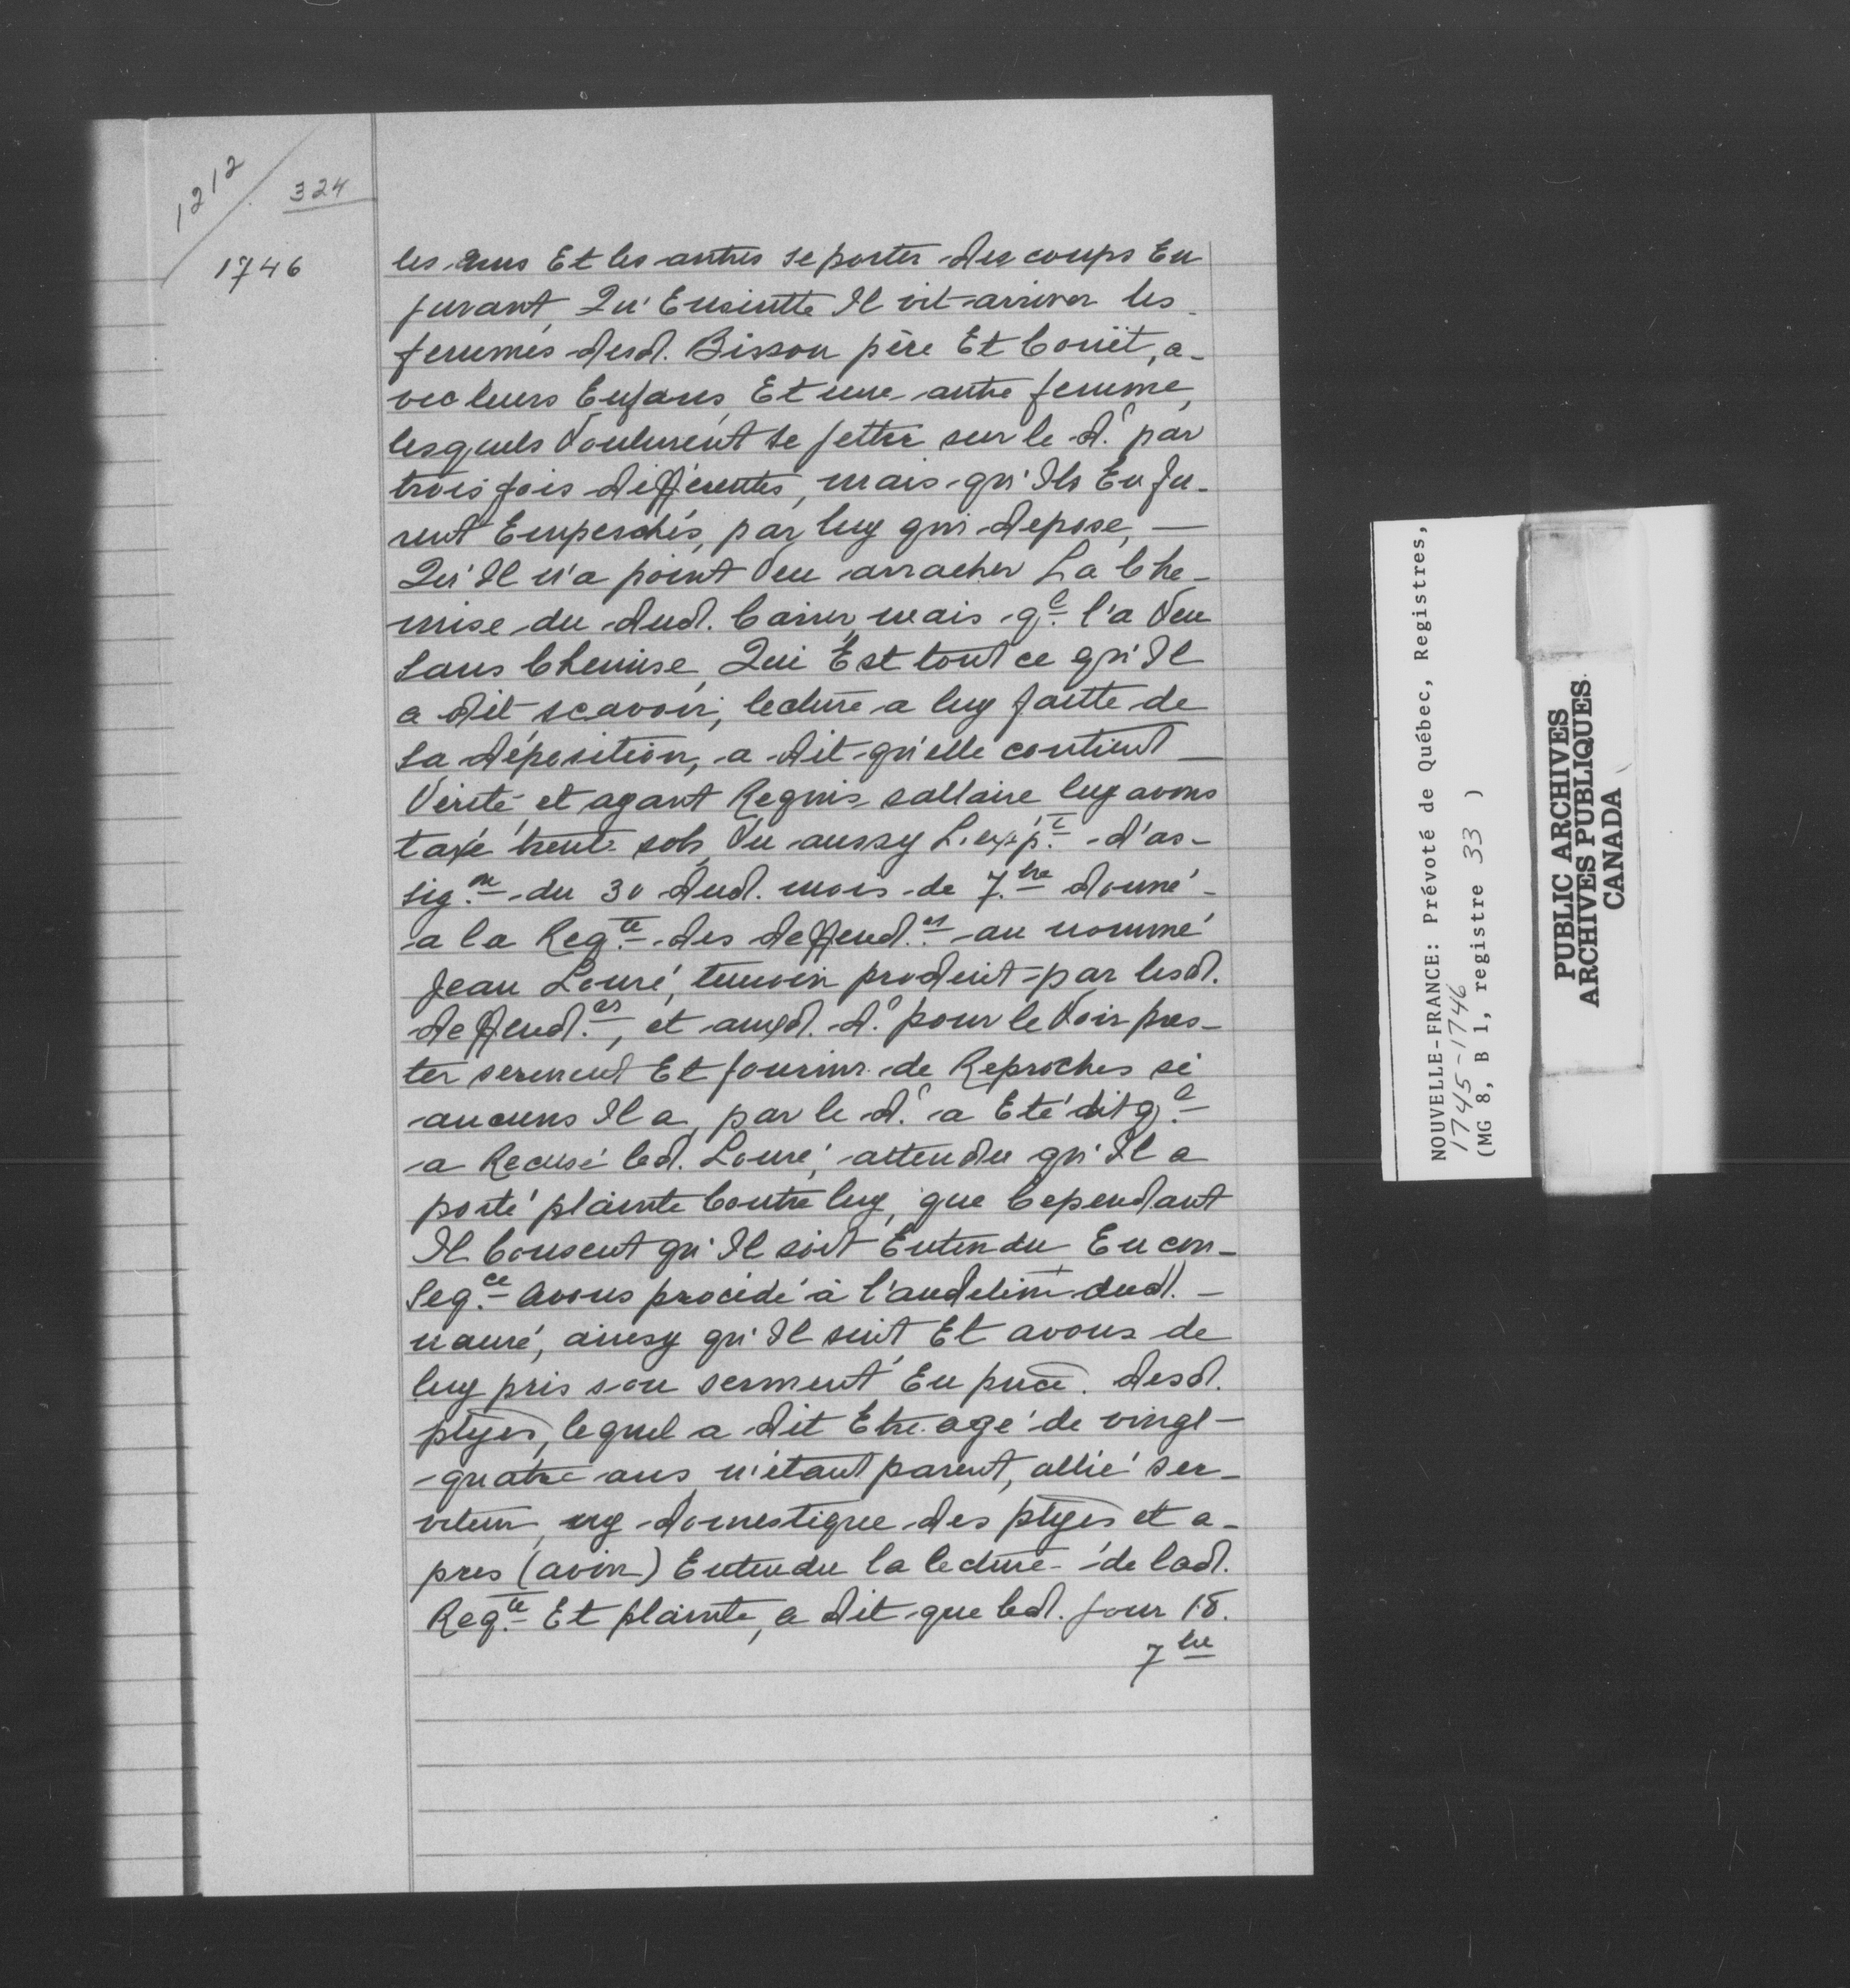 1212
324
1746
les uns Et les autres se porter des coups En
jurant, Qu'Ensuitte Il vit arriver les
femmes desd. Bisson père Et Couët, a-
vec leurs Enfans, Et une autre femme,
lesquels Voulurent se jetter sur le d.r par
trois fois differentes, mais qu'Ils En fu-
rent Empeschés, par luy qui depose, —
Qu'Il n'a point Veu arracher La Che-
mise du dud. mais q.l l'a Veu
Sans Chemise, Qui Est tout ce qu'Il
a dit scavoir, lecture a luy faitte de
Sa déposition, a dit qu'elle contient —
Vérité et ayant Requis sallaire luy avons
taxé trente sols, Vu aussy L. exp.t d'as-
sig.on du 30 dud. mois de 7.bre donné -
a la Req.te des deffend.rs au nommé
Jean Louré, temoin produit par lesd.
deffend.rs, et auxd. d.r pour le Voir pres-
ter serment Et fournir de Reproches si
aucuns Il a, par le d.r a Eté dit q.l
a Recusé led. Louré, attendu qu'Il a
porté plainte Contre luy, que Cependant
Il Consent qu'Il soit Entendu, En con-
seq.ce avons procédé à l'audition dud. -
nauré, ainsy qu'Il suit Et avons de
luy pris son serment En pnce. desd.
ptyes, lequel a dit Etre agé de vingt-
-quatre ans, n'étant parent, allié ser-
viteur, ny domestique des ptyes et a-
pres (avoir) Entendu la lecture de lad.
Req.te Et plainte, a dit que led. jour 18.
7bre
NOUVELLE-FRANCE: Prévoté de Québec, Registres,
1745-1746
(MG 8, B 1, registre 33 )
PUBLIC ARCHIVES
ARCHIVES PUBLIQUES
CANADA